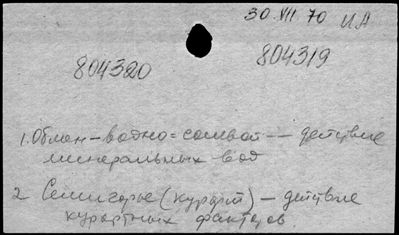 30.VII 70 ИА
804320 804319
1. Обмен - водно=солевой — действие
минеральных вод
2 Семигорье (курорт) — действие
курортных факторов.